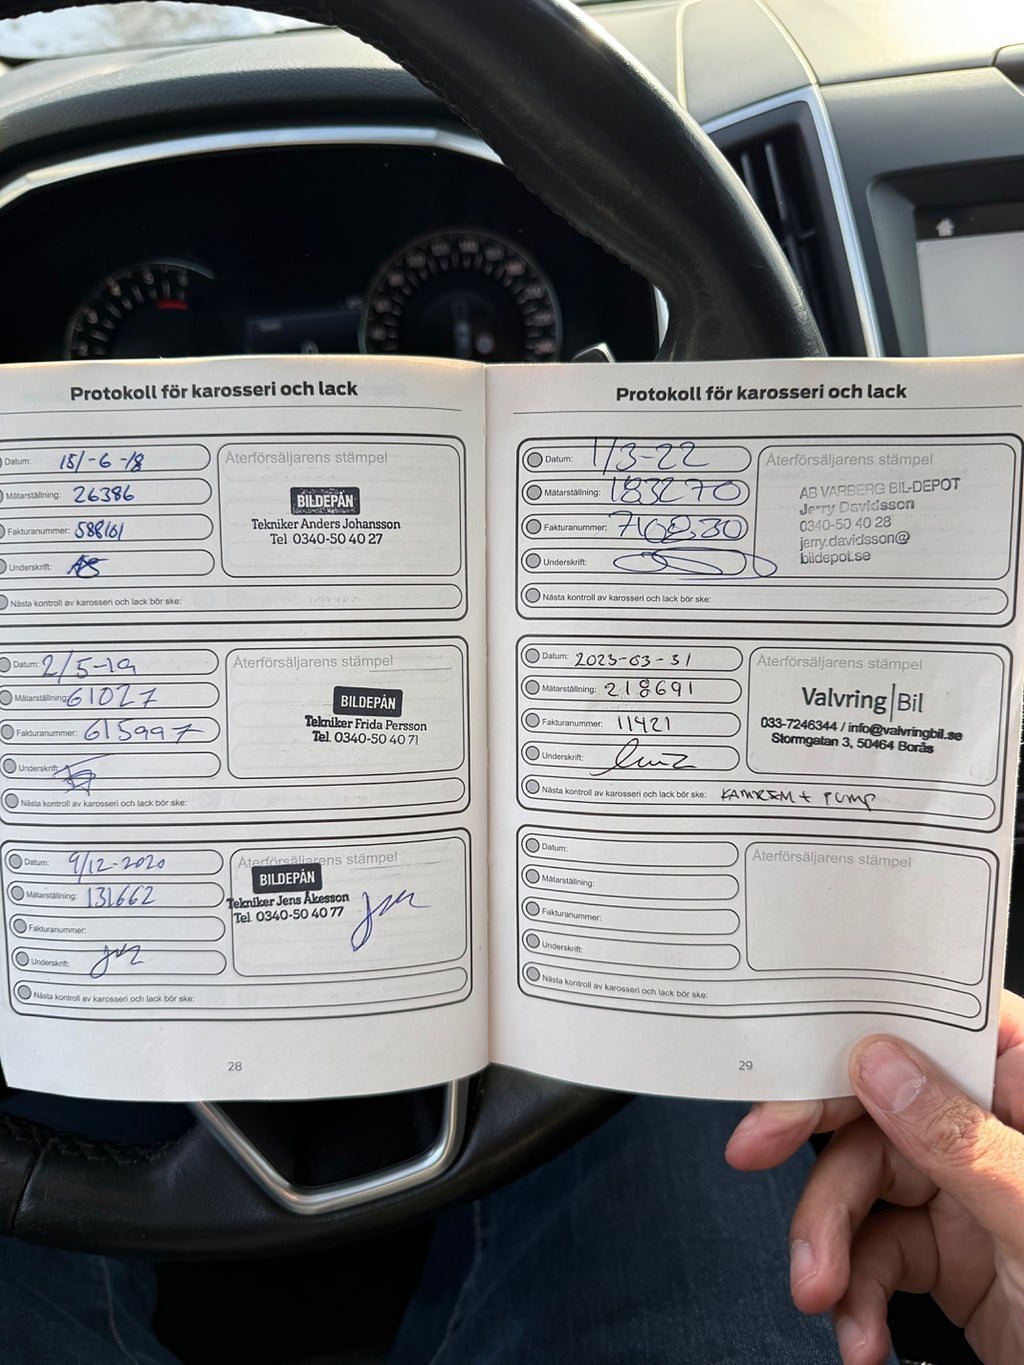 Protokoll för karosseri och lack
Datum: 15/-6-18
Mätarställning: 26386
Fakturanummer: 588161
Underskrift:
Återförsäljarens stämpel
BILDEPÅN
Tekniker Anders Johansson
Tel 0340-50 40 27
Nästa kontroll av karosseri och lack bör ske:
Datum: 2/5-19
Mätarställning: 61027
Fakturanummer: 615997
Underskrift:
Återförsäljarens stämpel
BILDEPÅN
Tekniker Frida Persson
Tel. 0340-50 40 71
Nästa kontroll av karosseri och lack bör ske:
Datum: 9/12-2020
Mätarställning: 131662
Fakturanummer:
Underskrift:
Återförsäljarens stämpel
BILDEPÅN
Tekniker Jens Åkesson
Tel. 0340-50 40 77
Nästa kontroll av karosseri och lack bör ske:
28
Protokoll för karosseri och lack
Datum: 1/3-22
Mätarställning: 183270
Fakturanummer:
Underskrift:
Återförsäljarens stämpel
AB VARBERG BIL-DEPOT
Jerry Davidsson
0340-50 40 28
jerry.davidsson@
bildepot.se
Nästa kontroll av karosseri och lack bör ske:
Datum: 2023-03-31
Mätarställning: 218691
Fakturanummer: 11421
Underskrift:
Återförsäljarens stämpel
Valvring|Bil
033-7246344 / info@valvringbil.se
Stormgatan 3, 50464 Borås
Nästa kontroll av karosseri och lack bör ske: KAMREM + PUMP
Datum:
Mätarställning:
Fakturanummer:
Underskrift:
Återförsäljarens stämpel
Nästa kontroll av karosseri och lack bör ske:
29